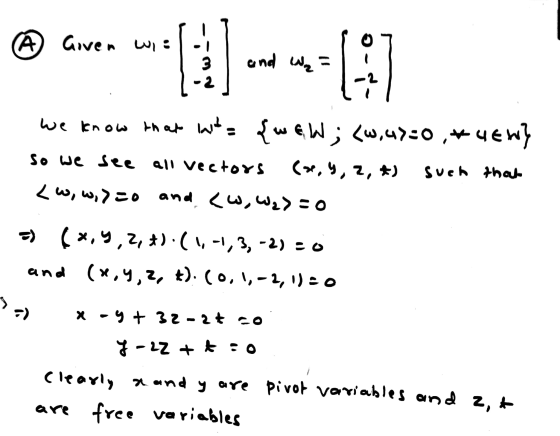 Ⓐ Given w₁ = [1 -1 3 -2] and w₂ = [0 1 -2 1]
We know that W⊥ = {w ∈ W ; <w,u>=0 , ∀ u ∈ W}
So we see all vectors (x, y, z, t) such that
<w, w₁>=0 and <w, w₂> = 0
⇒ (x, y, z, t)·(1, -1, 3, -2) = 0
and (x, y, z, t)·(0, 1, -2, 1) = 0
⇒ x - y + 3z - 2t = 0
y - 2z + t = 0
Clearly x and y are pivot variables and z, t
are free variables